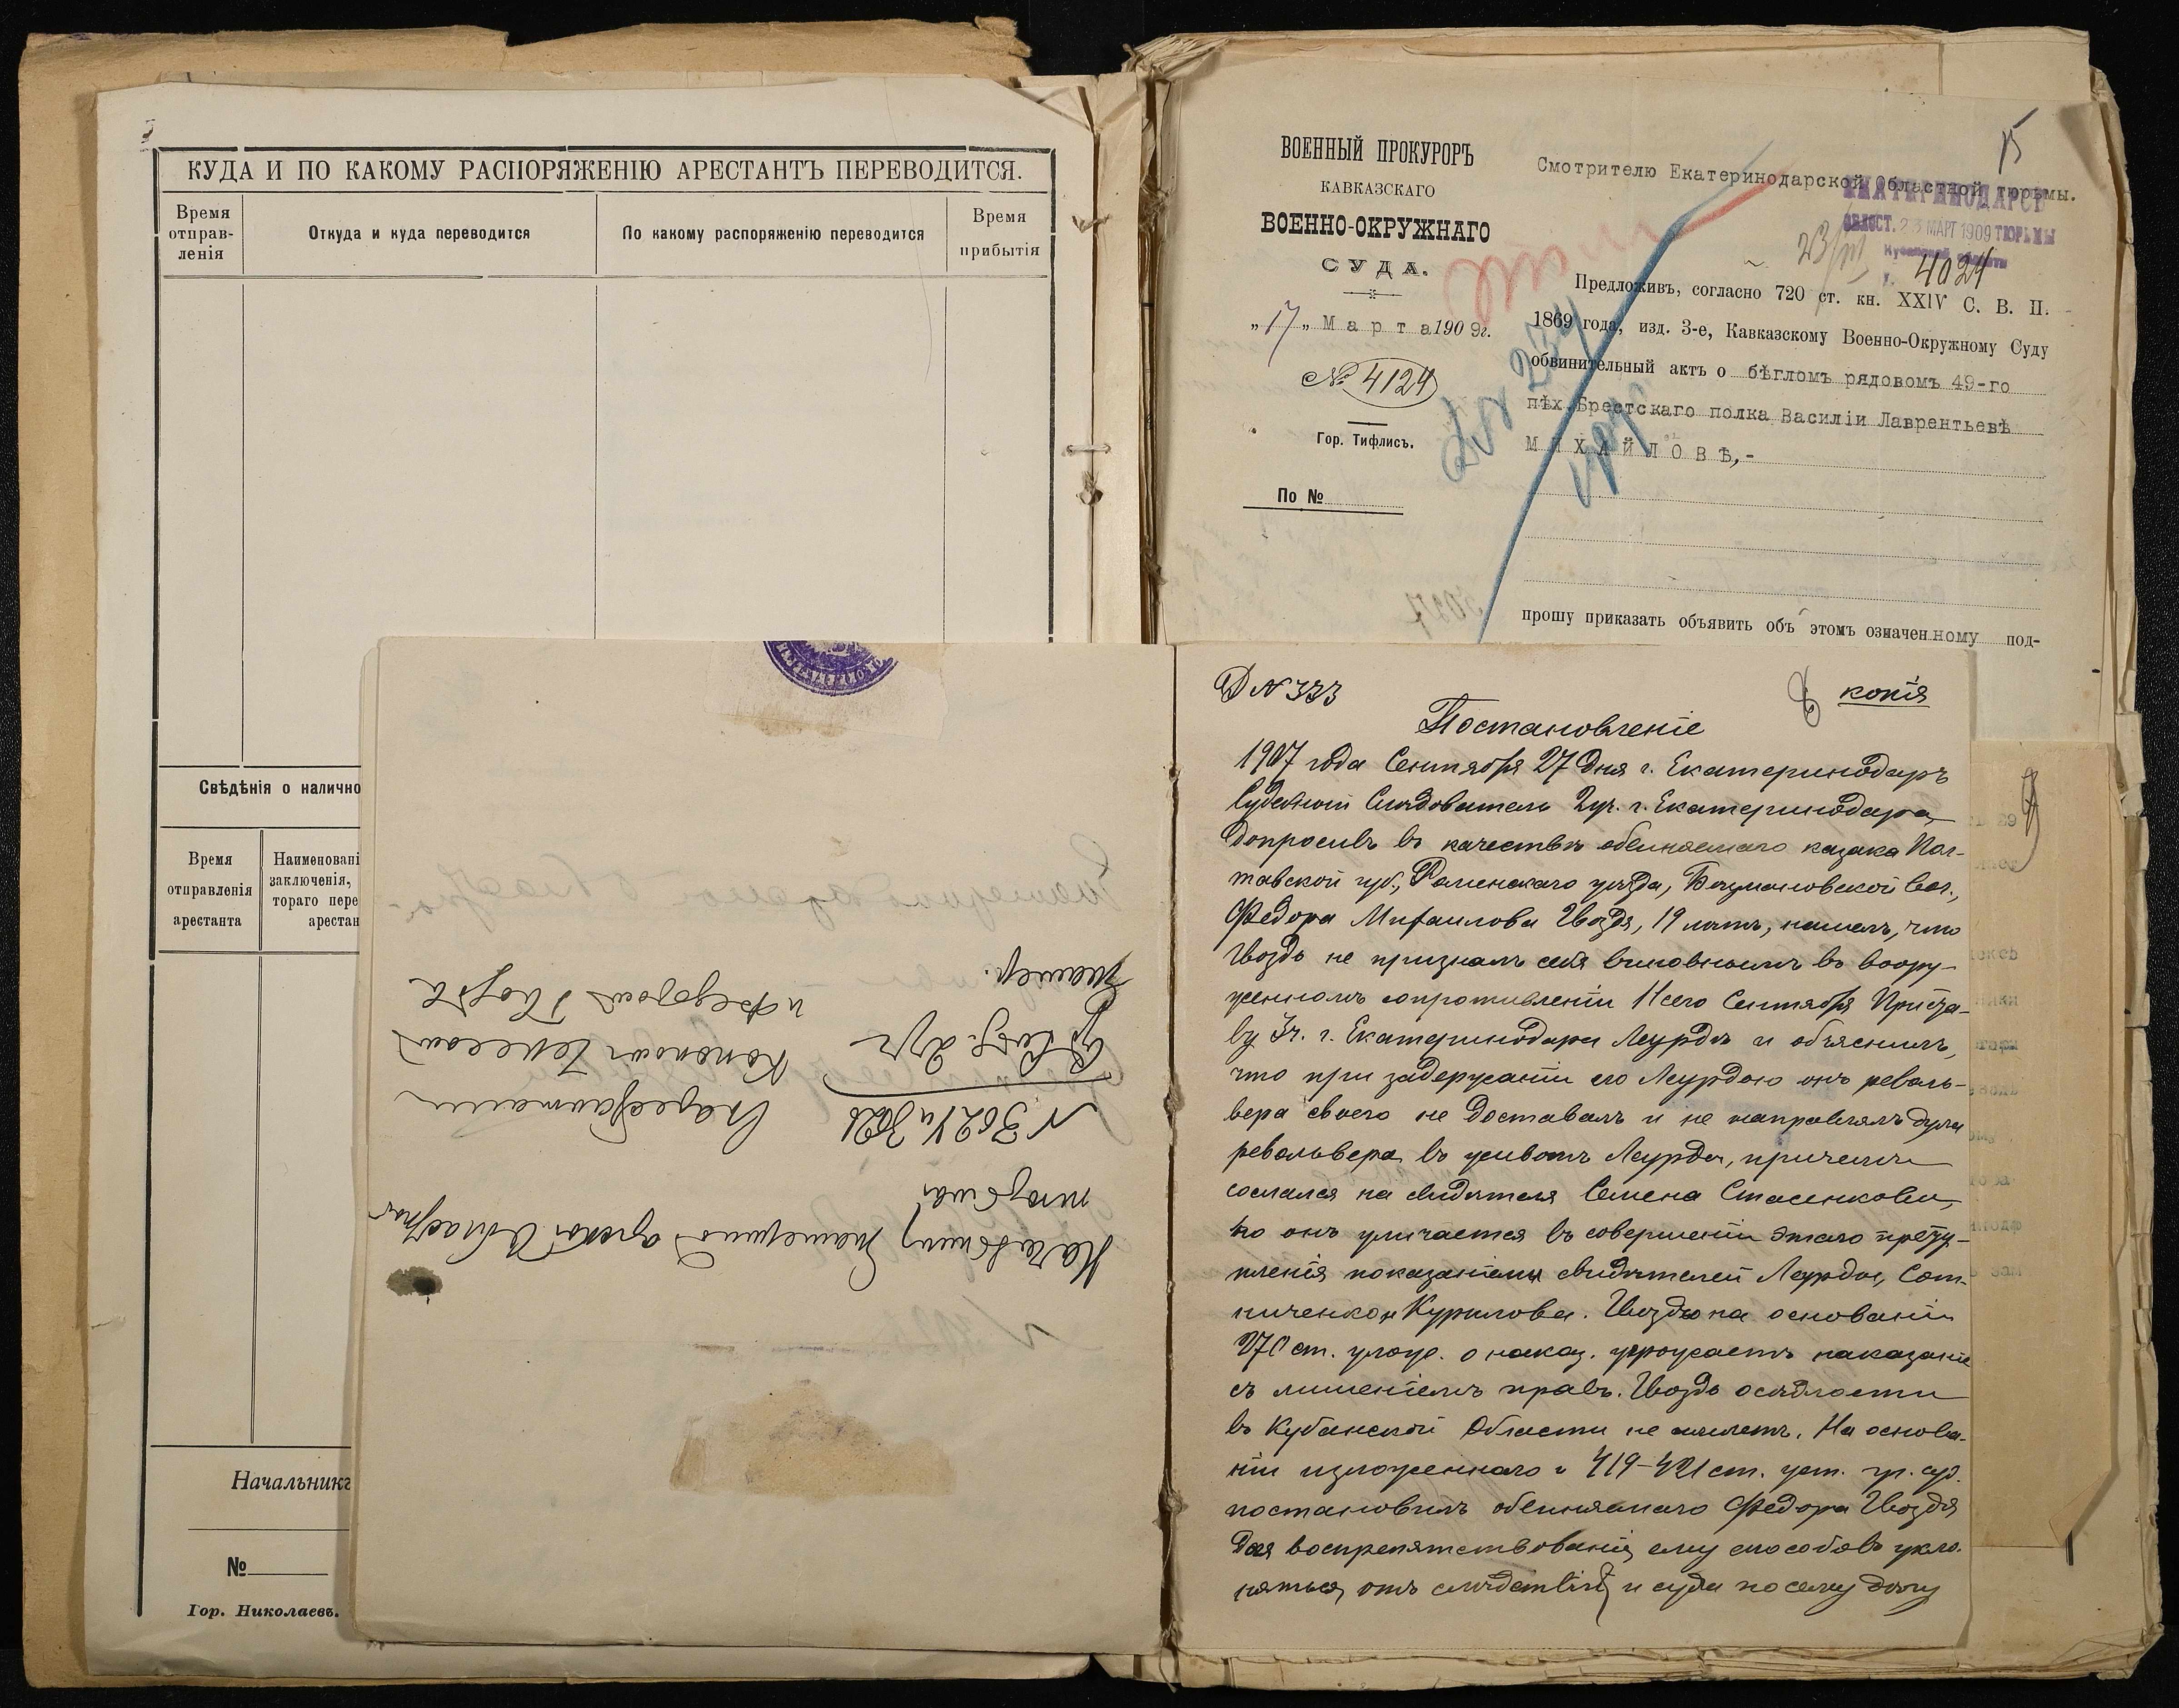 КУДА И ПО КАКОМУ РАСПОРЯЖЕНІЮ АРЕСТАНТЪ ПЕРЕВОДИТСЯ.
Время
отправ-
ленія
Откуда и куда переводится
По какому распоряженію переводится
Время
прибытія
Свѣдѣнія о налично
Время
отправленія
арестанта
Наименовані
заключенія,
тораго пере
арестан
Начальникъ
№
Гор. Николаевъ.
Начальнику Екатеринодарской Областной
тюрьмы
N 3024 и 3026
С арестантами
Кононом
и Федором Гвоздь
ВОЕННЫЙ ПРОКУРОРЪ
КАВКАЗСКАГО
ВОЕННО-ОКРУЖНАГО
СУДА.
„17„ Марта 1909г.
№ 4124
Гор. Тифлисъ.
По №
15
Смотрителю Екатеринодарской Областной тюрьмы.
ЕКАТЕРИНОДАРСК
ОБЛАСТ. 23 МАРТ 1909 ТЮРЬМЫ
Кубанской области
23/III 4024
Предложивъ, согласно 720 ст. кн. XXIV С. В. П.
1869 года, изд. 3-е, Кавказскому Военно-Окружному Суду
обвинительный актъ о бѣгломъ рядовомъ 49-го
пѣх. Брестскаго полка Василіи Лаврентьевѣ
МИХАЙЛОВѢ,-
прошу приказать объявить объ этомъ означенному под-
Д N 333
копія
Постановленіе
1907 года Сентября 27 дня г. Екатеринодаръ
Судебный Слѣдователь 2 уч. г. Екатеринодара,
допросивъ въ качествѣ обвиняемаго казака Пол-
тавской губ., Роменскаго уѣзда, вол.,
Федора Михаилова Гвоздя, 19 лѣтъ, нашелъ, что
Гвоздь не призналъ себя виновнымъ въ воору-
женномъ сопротивленіи 11 сего Сентября Приста-
ву 3 ч. г. Екатеринодара Леурдѣ и объяснилъ,
что при задержаніи его Леурдою онъ револь-
вера своего не доставалъ и не направлялъ дула
револьвера въ животъ Леурды, причемъ
сослался на свидѣтеля Семена Стасенкова,
но онъ уличается въ совершеніи этого престу-
пленія показаніями свидѣтелей Леурды, Сот-
ниченко и Курилова. Гвоздю на основаніи
270 ст. улож. о наказ. угрожаетъ наказаніе
съ лишеніемъ правъ. Гвоздь осѣдлости
въ Кубанской Области не имѣетъ. На основа-
ніи изложеннаго и 419-421 ст. уст. уг. суд.
постановилъ обвиняемаго Федора Гвоздя
для воспрепятствованія ему способовъ укло-
няться отъ слѣдствія и суда по сему дѣлу